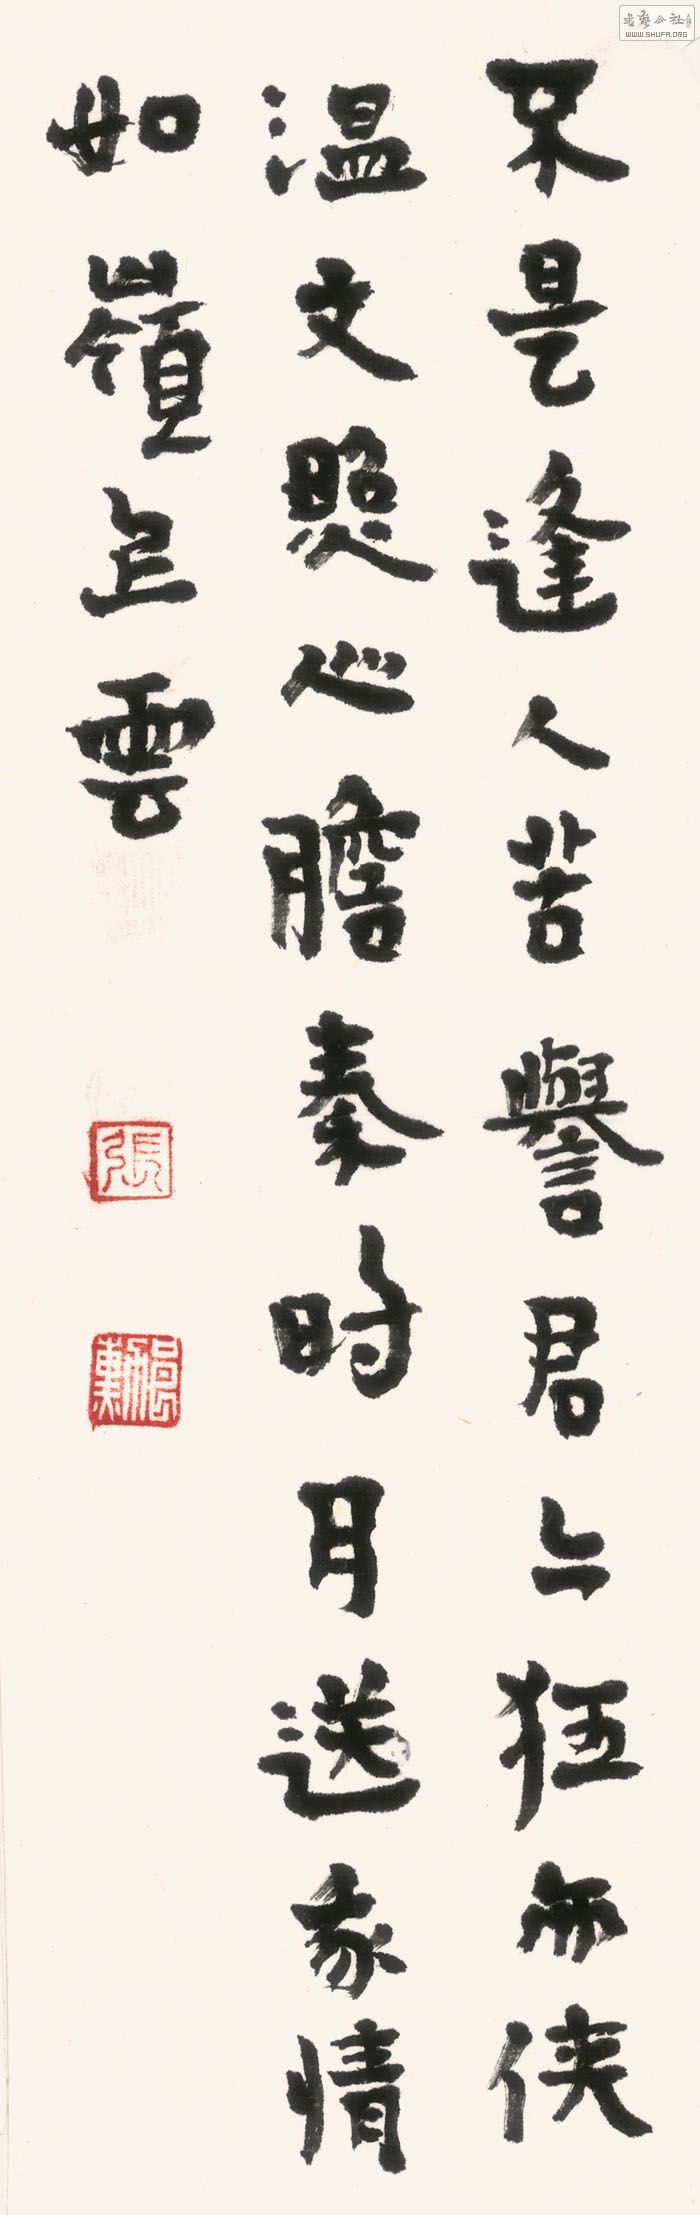 書藝公社
WWW.SHUFA.ORG
不是逢人苦譽君狂而侠
温文照心膽秦时月送我情
如嶺上雲
張